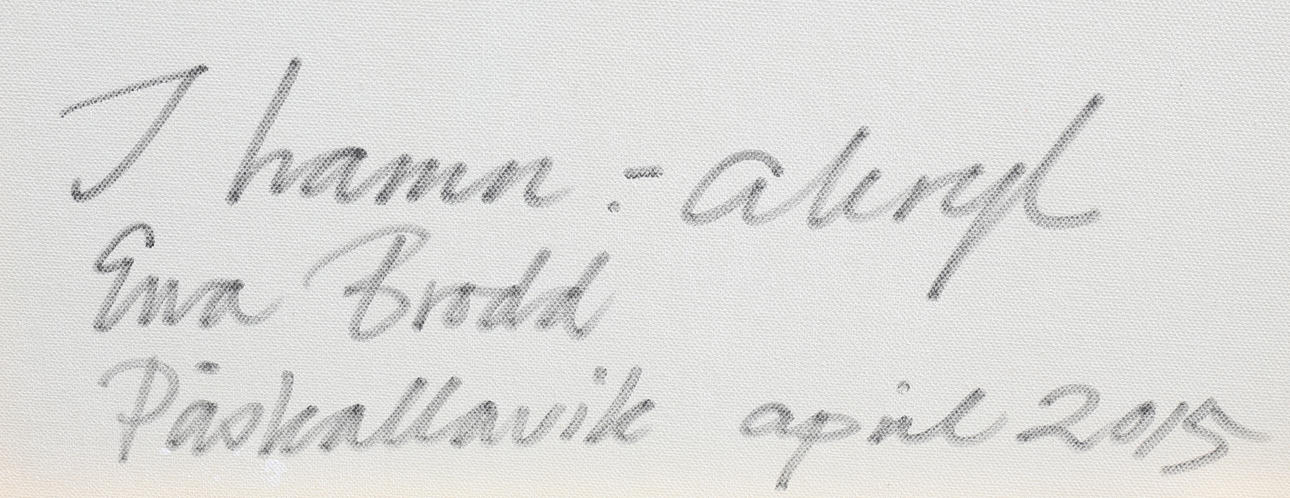 I hamn. - akryl
Ewa Brodd
Påskallavik april 2015